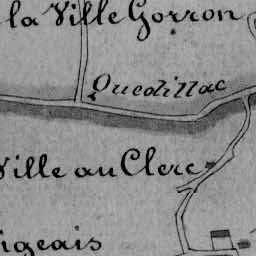 la Ville Gorron
Quedillac
Ville au Clerc
igeais